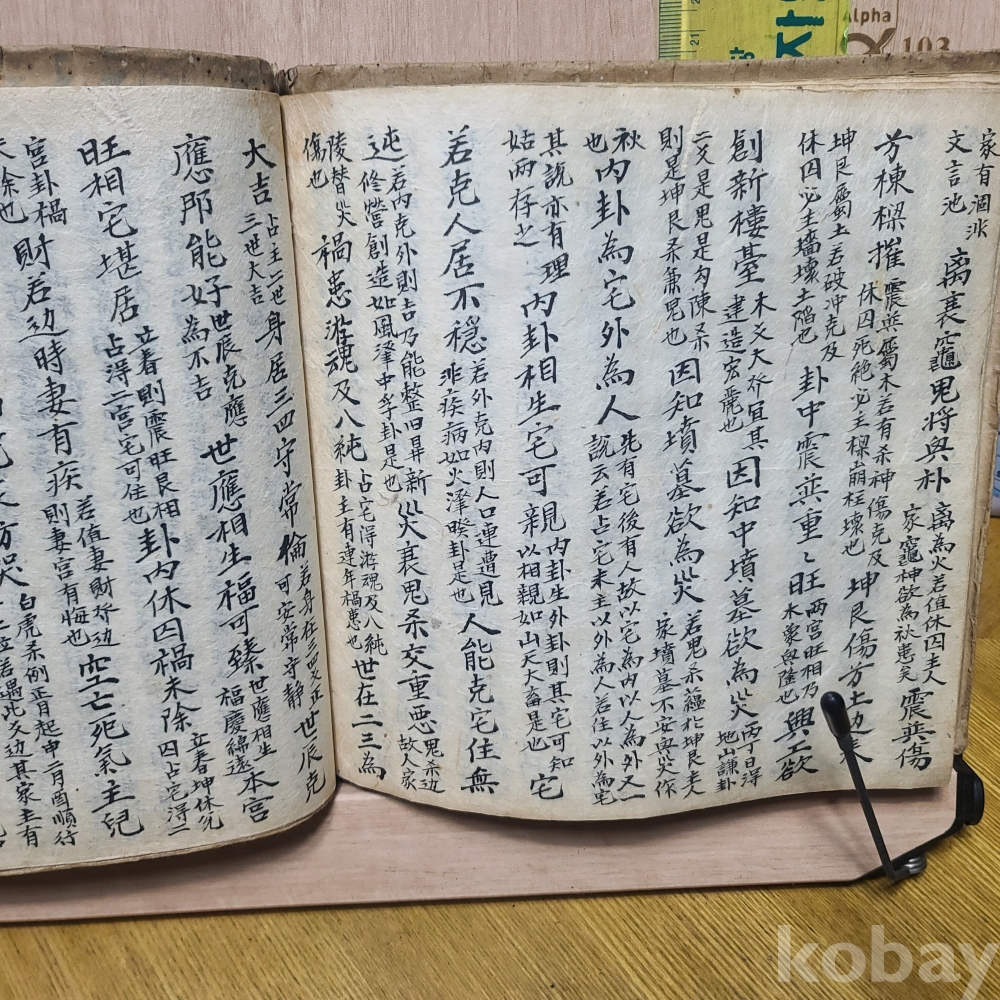 家有涸氷
文言池 离衰竈鬼將與朴 离為火若值休囚主人
家竈神欲為妖患矣 震巽傷
芳棟樑摧 震巽屬木若有杀神傷克及
休囚死絶必主樑崩柱壞也 坤艮傷芳土边
坤艮屬土若破冲克及
休囚必主墻壞土陷也 卦中震巽重〻旺 两宮旺相乃
木象興隆也 興工欲
創新樓䑓 木爻天喜宜其
建造宏麗也 因知中墳墓欲為災 丙丁日得
地山謙卦
二爻是鬼是勾陳杀
則是坤艮杀兼鬼也 因知墳墓欲為災 若鬼杀藴於坤艮夫
家墳墓不安與災作
也 秋 內卦為宅外為人 先有宅後有人故以宅為內以人為外又一
說云若占宅来主以外為人若住以外為宅
其說亦有理
姑两存之 內卦相生宅可親 內卦生外卦則其宅可知
以相親如山天大畜是也 宅
若克人居不穩 若外克內則人口連遭見
非疾病如火澤暌卦是也 人能克宅住無
迍 若內克外則吉乃能整旧昇新
迍修營創造如風澤中孚卦是也 災衰鬼杀交重悪 鬼杀边
故人家
陵替災
傷也 禍患游魂及八純 占宅得游魂及八純
卦主有連年禍患也 世在二三為
大吉 占主二世
三世大吉 身居三四守常倫 若身在三四爻正
可安常守静 世辰克
應那能好 世辰克應
為不吉 世應相生福可臻 世應相生
福慶綿遠 本宮
旺相宅堪居 立春則震旺艮相
占得二宮宅可住也 卦內休囚禍未除 立春坤休兌
囚占宅得二
宮卦禍
未除也 財若边時妻有疾 若值妻財爻边
則妻宮有悔也 空亡死氣主兒
白虎杀例正月起申二月酉順行